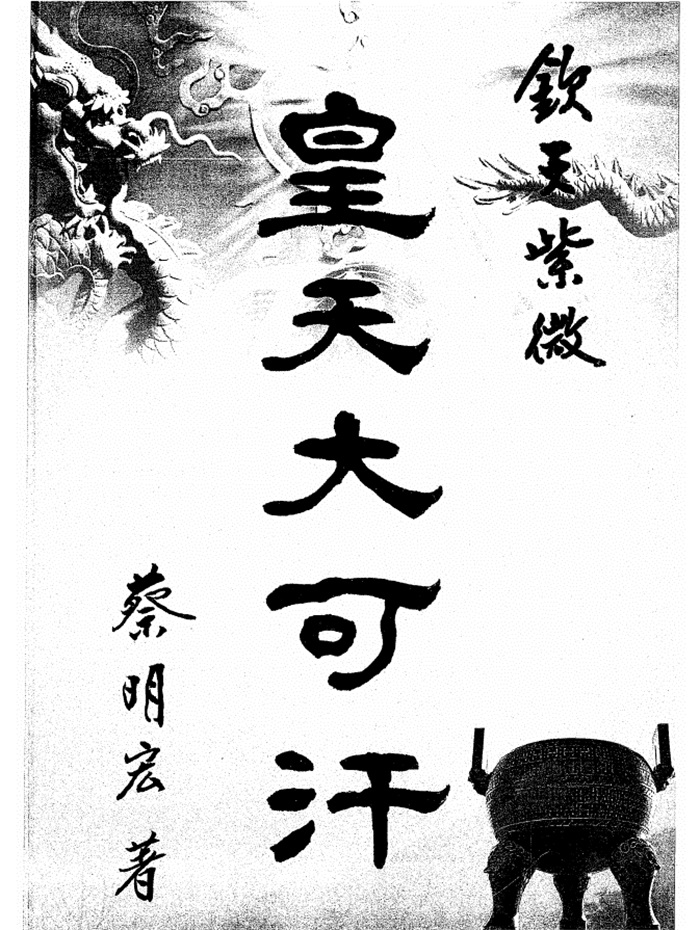 欽天紫微
皇天大可汗
蔡明宏 著